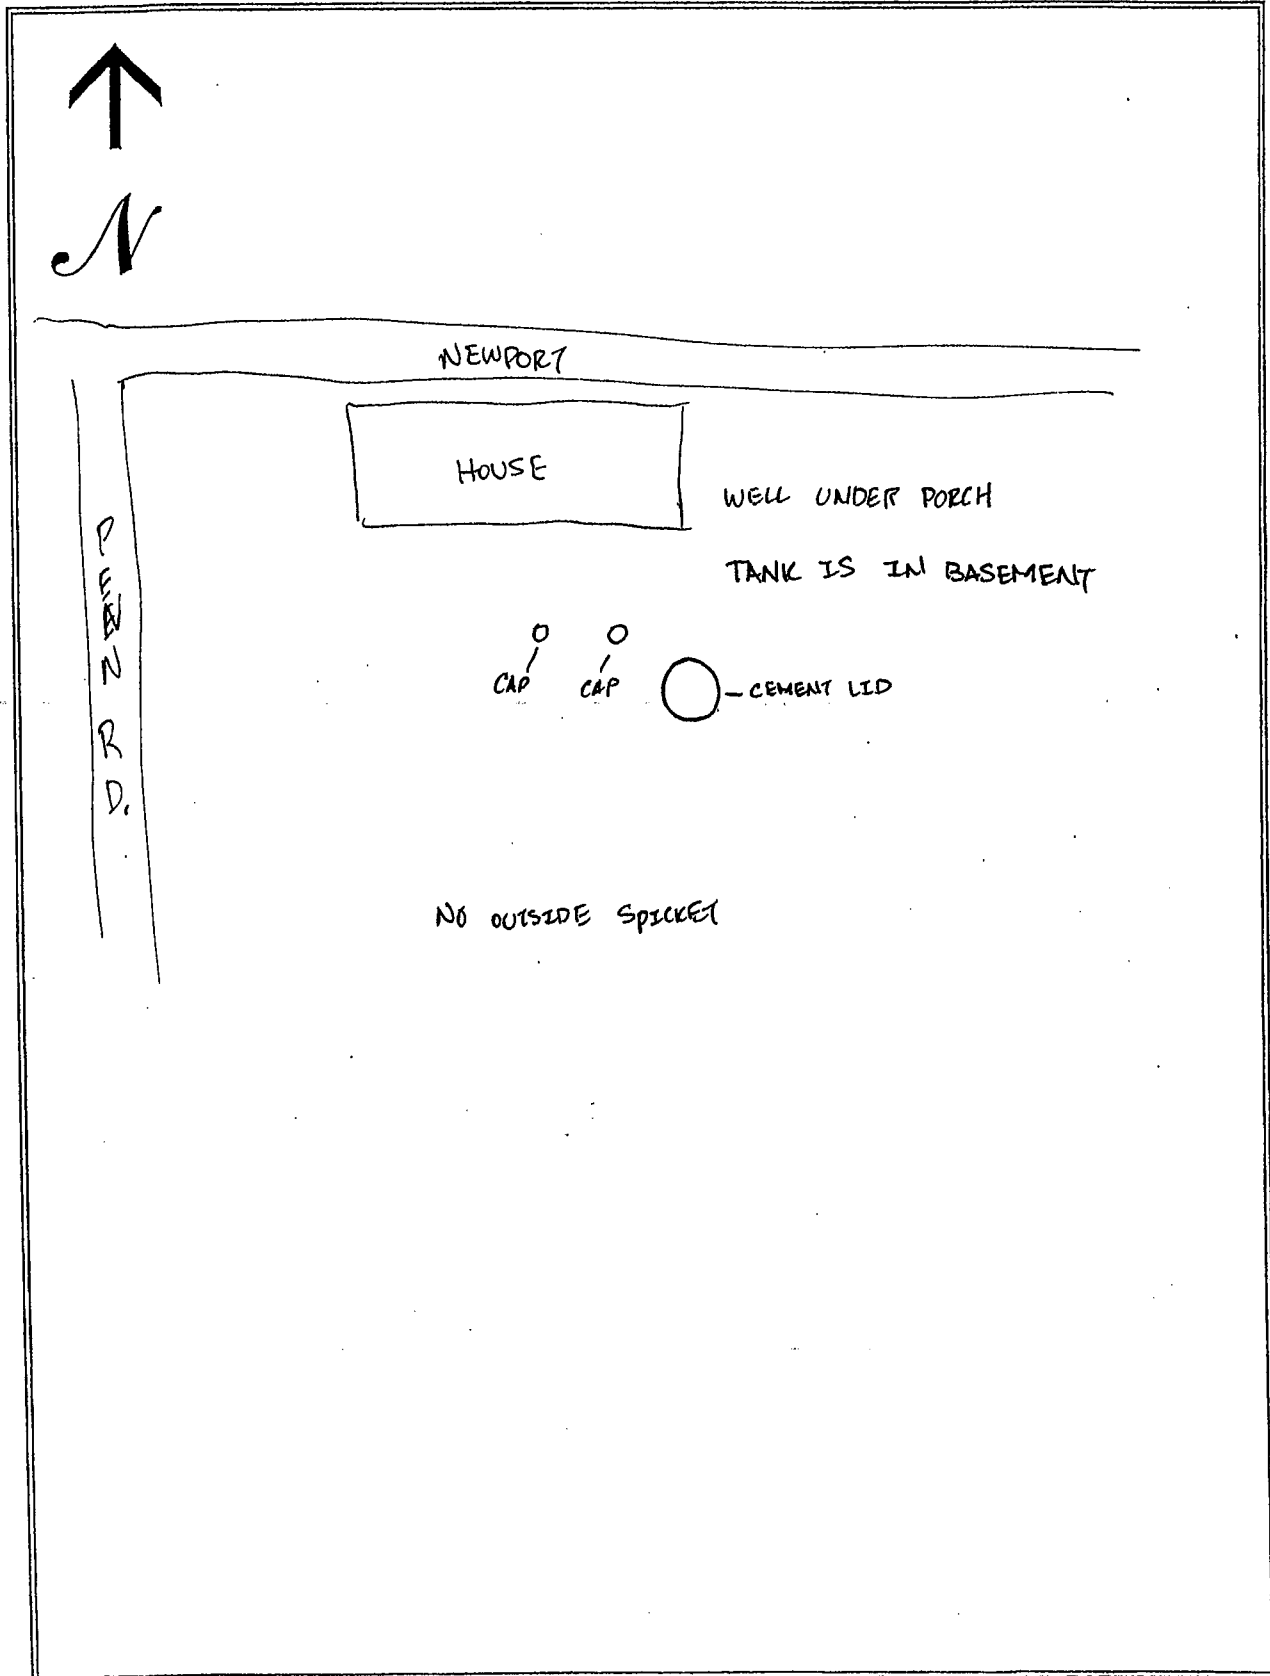 N
NEWPORT
HOUSE
WELL UNDER PORCH
TANK IS IN BASEMENT
CAP
CAP
CEMENT LID
RD.
NO OUTSIDE SPICKET